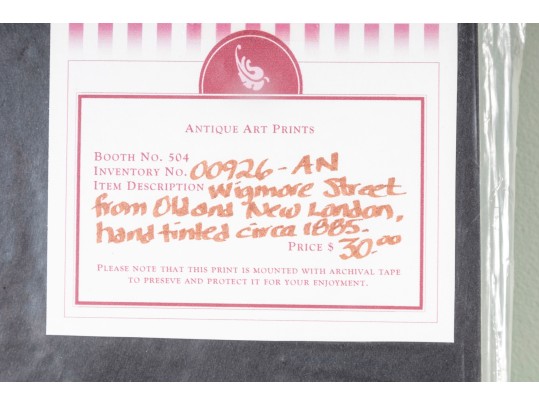 ANTIQUE ART PRINTS
BOOTH NO. 504
INVENTORY NO. 00926-AN
ITEM DESCRIPTION Wigmore Street
from Old and New London,
hand tinted circa 1885.
PRICE $ 30.00
PLEASE NOTE THAT THIS PRINT IS MOUNTED WITH ARCHIVAL TAPE
TO PRESEVE AND PROTECT IT FOR YOUR ENJOYMENT.